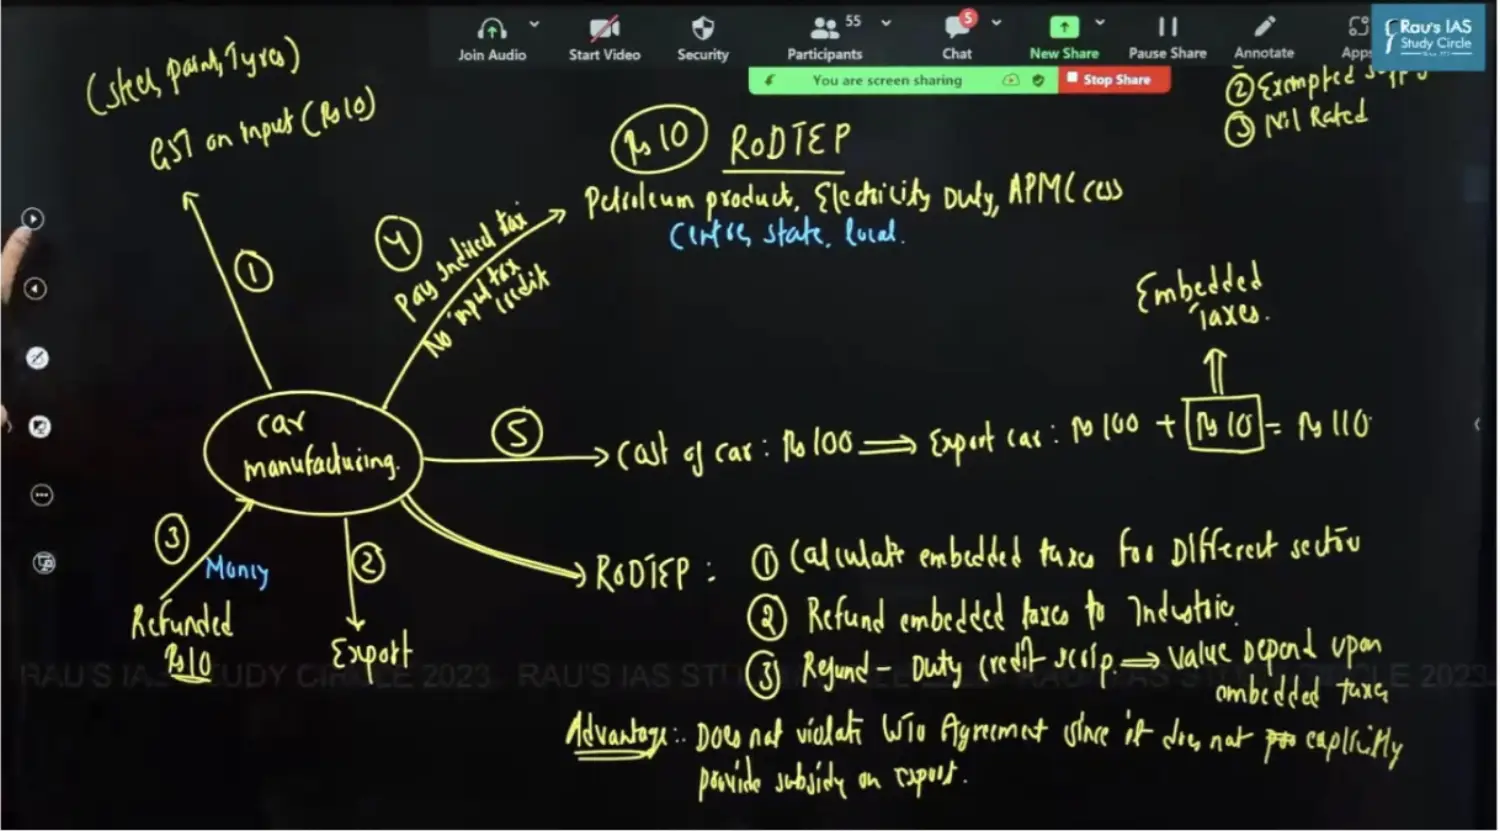 Join Audio
Start Video
Security
55
Participants
5
Chat
New Share
Pause Share
Annotate
Apps
Rau's IAS
Study Circle
You are screen sharing
Stop Share
(Steel, Paint, Tyres)
GST on Input (Rs 10)
② Exempted
③ Nil Rated
Rs 10 RODTEP
Petroleum product, Electricity Duty, APMC Cess
Centre, state, local.
④ Pay Indirect tax
No input tax
credit
①
Embedded
Taxes.
Car
manufacturing.
⑤ Cost of car : Rs 100 ⟹ Export car : Rs 100 + Rs 10 = Rs 110
③ Money
Refunded
Rs 10
②
Export
RODTEP :
① Calculate embedded taxes for Different sector
② Refund embedded taxes to Industrie.
③ Refund - Duty credit scrip ⟹ Value Depend upon
embedded taxes
RAU'S IAS STUDY CIRCLE 2023
Advantage: Does not violate WTO Agreement since it does not explicitly
provide subsidy on export.